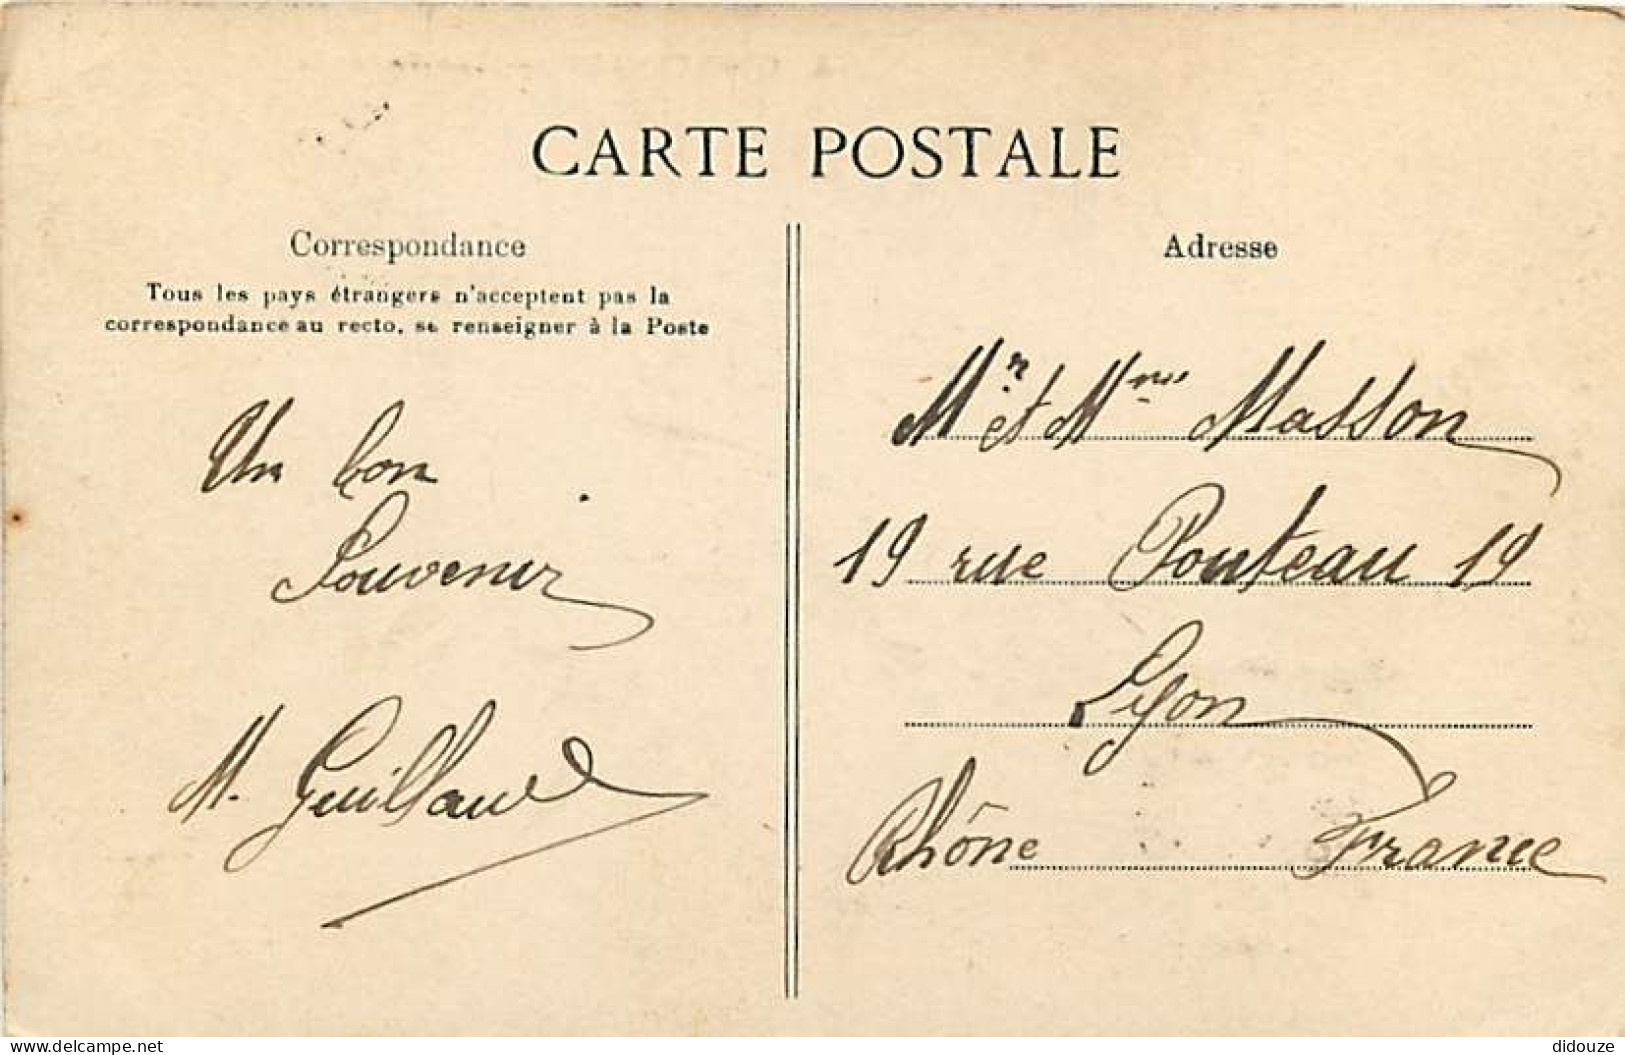 CARTE POSTALE
Correspondance
Tous les pays étrangers n'acceptent pas la
correspondance au recto, se renseigner à la Poste
Un bon
Souvenir
M. Guillaud
Adresse
Mr et Mme Masson
19 rue Pouteau 19
Lyon
Rhône France
delcampe.net
didouze